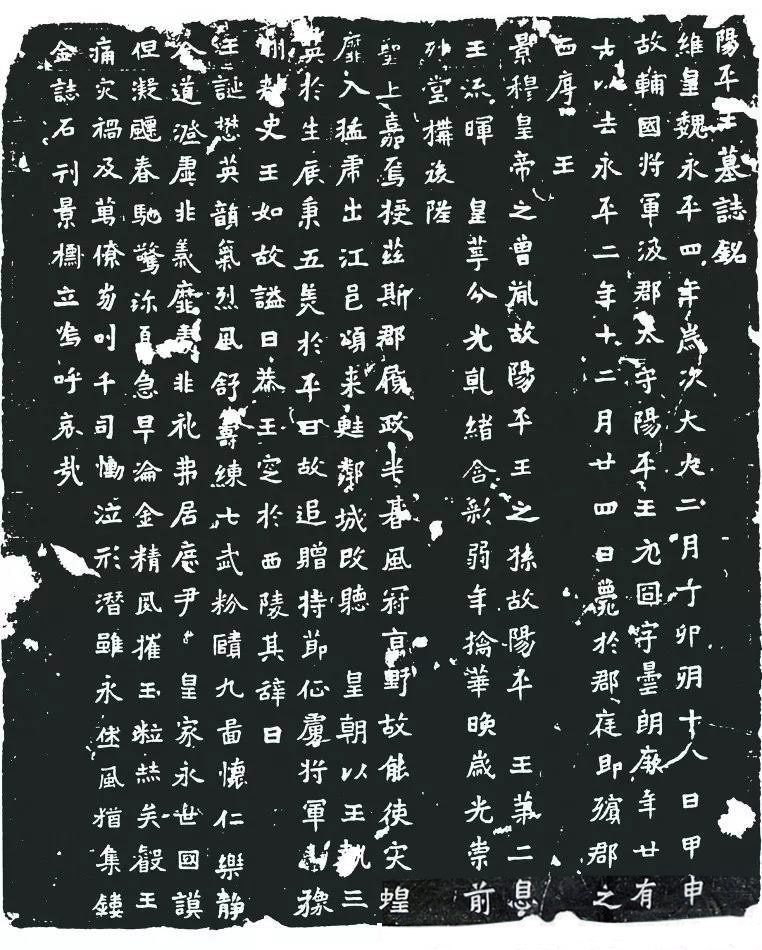 陽平王墓誌銘
維皇魏永平四年歲次大火二月丁卯朔十八日甲申
故輔國將軍汲郡太守陽平王元冏字曇朗厥年廿有
六以去永平二年十二月廿四日薨於郡庭即殯郡之
西序 王
景穆皇帝之曾胤故陽平王之孫故陽平 王第二息
王派暉 皇萼分光乹緒含彩弱年摛華晚歲光崇前
列堂搆後陛
聖上嘉焉授茲斯郡履政半朞風冠京野故能使灾蝗
靡入猛肅出江邑頌来鄰城改聽 皇朝以王執三
英於生辰秉五美於平日故追贈持節征虜將軍豫
州刺史王如故謚曰恭王窆於西陵其辞曰
王誕懋英韻氣烈風舒壽練七武粉賾九畵懷仁樂靜
道澄虛非義靡非礼弗居庶尹〻皇家永世國謨
但凝飇春馳驚夏急早淪金精夙摧玉粒矣叡王
痛灾禍及萬僚叫千司慟泣形潛雖永烋風猶集鏤
金誌石刊景檦立嗚呼哀哉